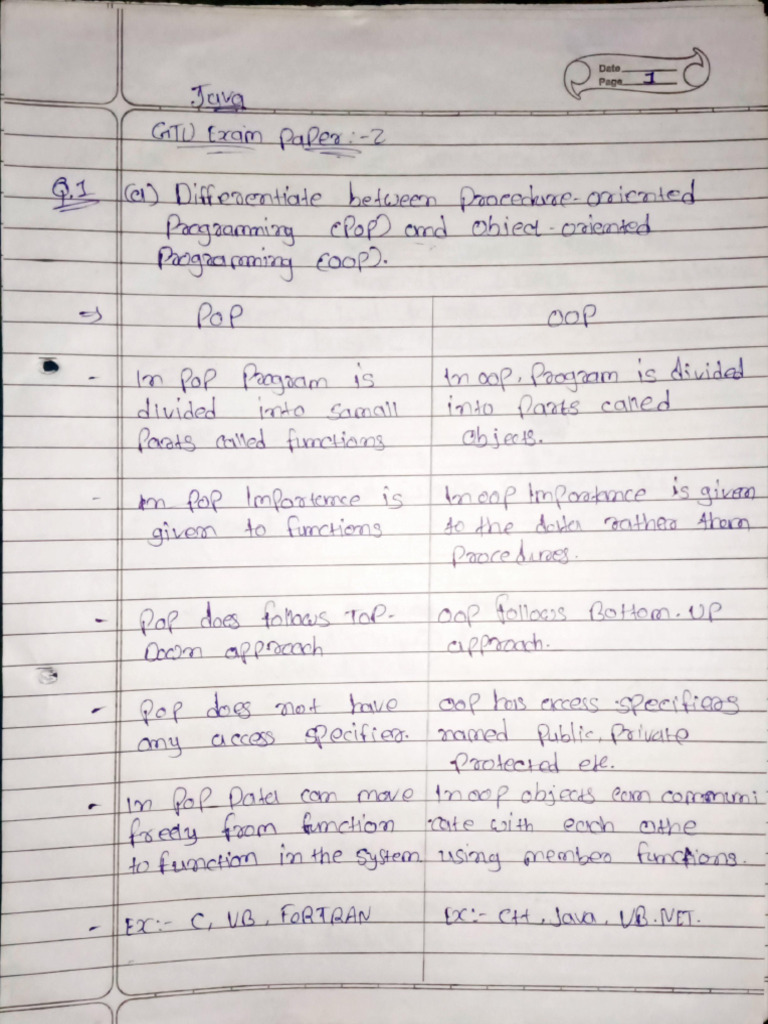 Date
Page 1
Java
GTU Exam Paper:-2
Q.1 (a) Differentiate between Procedure-oriented
Programming (POP) and Object-oriented
Programming (OOP).
⇒ POP
OOP
- In POP Program is
divided into samall
Parts called functions
In OOP, Program is divided
into Parts called
objects.
- In POP Importance is
given to functions
In OOP Importance is given
to the data rather them
Procedures.
- POP does follows TOP-
Down approach
OOP follows Bottom-UP
approach.
- POP does not have
any access specifier.
OOP has access specifiers
named Public, Private
Protected etc.
- In POP Data can move
freely from function
to function in the system
In OOP objects can communi
cate with each othe
using member functions.
- EX:- C, VB, FORTRAN
EX:- C++, Java, VB.NET.